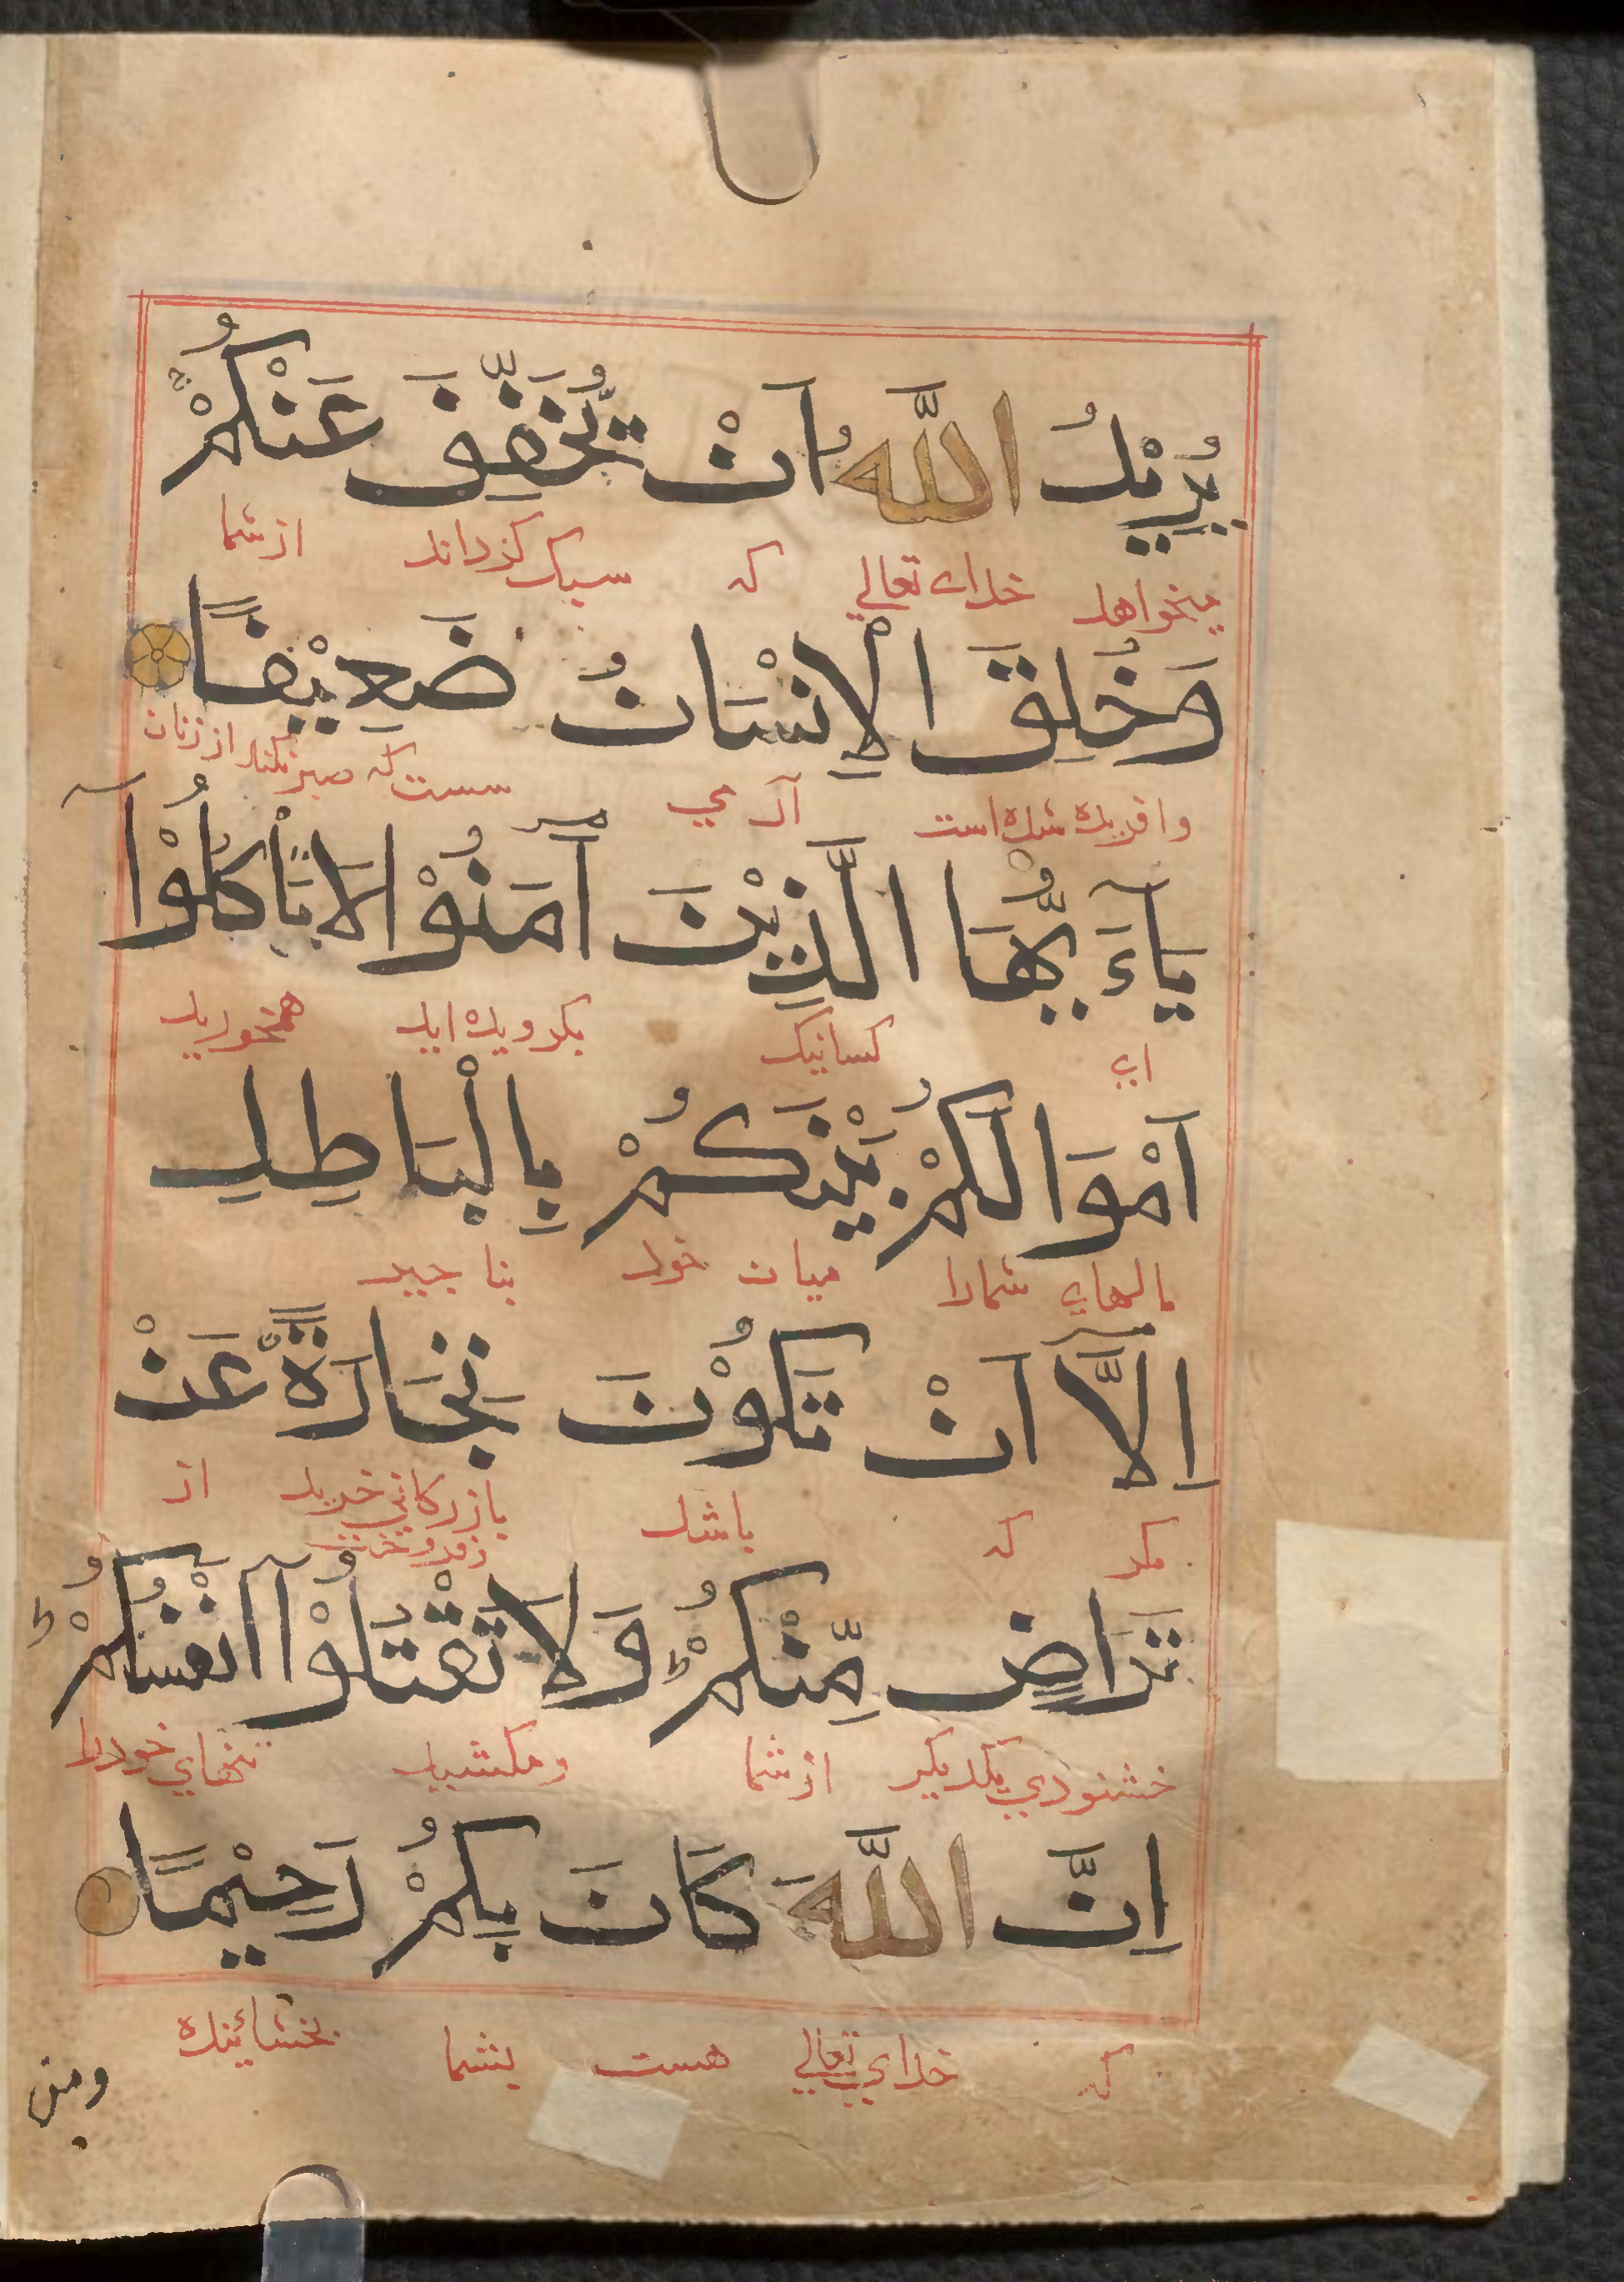 يُرِيْدُ اللّٰهُ اَنْ يُّخَفِّفَ عَنْكُمْ
ميخواهد خداى تعالي كه سبك كرداند از شما
وَخُلِقَ الْاِنْسَانُ ضَعِيْفًا
وافريده شده است آدمي سست كه صبر نكند از زنان
يَآءَيُّهَا الَّذِيْنَ آمَنُوْا لَا تَاْكُلُوْآ
اي كسانيك بكرويده ايد مخوريد
اَمْوَالَكُمْ بَيْنَكُمْ بِالْبَاطِلِ
مالهاي شمارا ميان خود بنا
اِلَّآ اَنْ تَكُوْنَ تِجَارَةً عَنْ
مكر كه باشد بازركاني خريد از
تَرَاضٍ مِّنْكُمْ وَلَا تَقْتُلُوْآ اَنْفُسَكُمْ
خشنودي يكديكر از شما ومكشيد تنهاي خودرا
اِنَّ اللّٰهَ كَانَ بِكُمْ رَحِيْمًا
كه خداي تعالي هست بشما بخشائنده
ومن